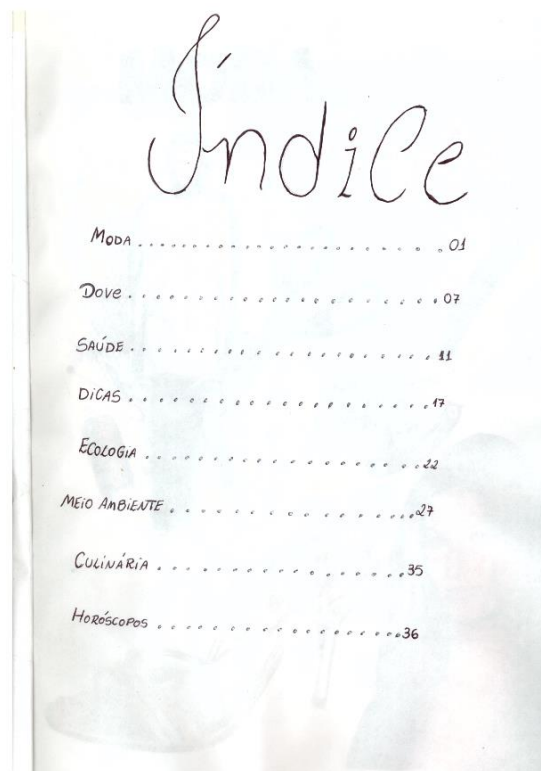 Índice
Moda .......................... 01
Dove .......................... 07
SAÚDE .......................... 11
DICAS .......................... 17
ECOLOGIA .......................... 22
MEIO AMBIENTE .......................... 27
CULINÁRIA .......................... 35
HORÓSCOPOS .......................... 36